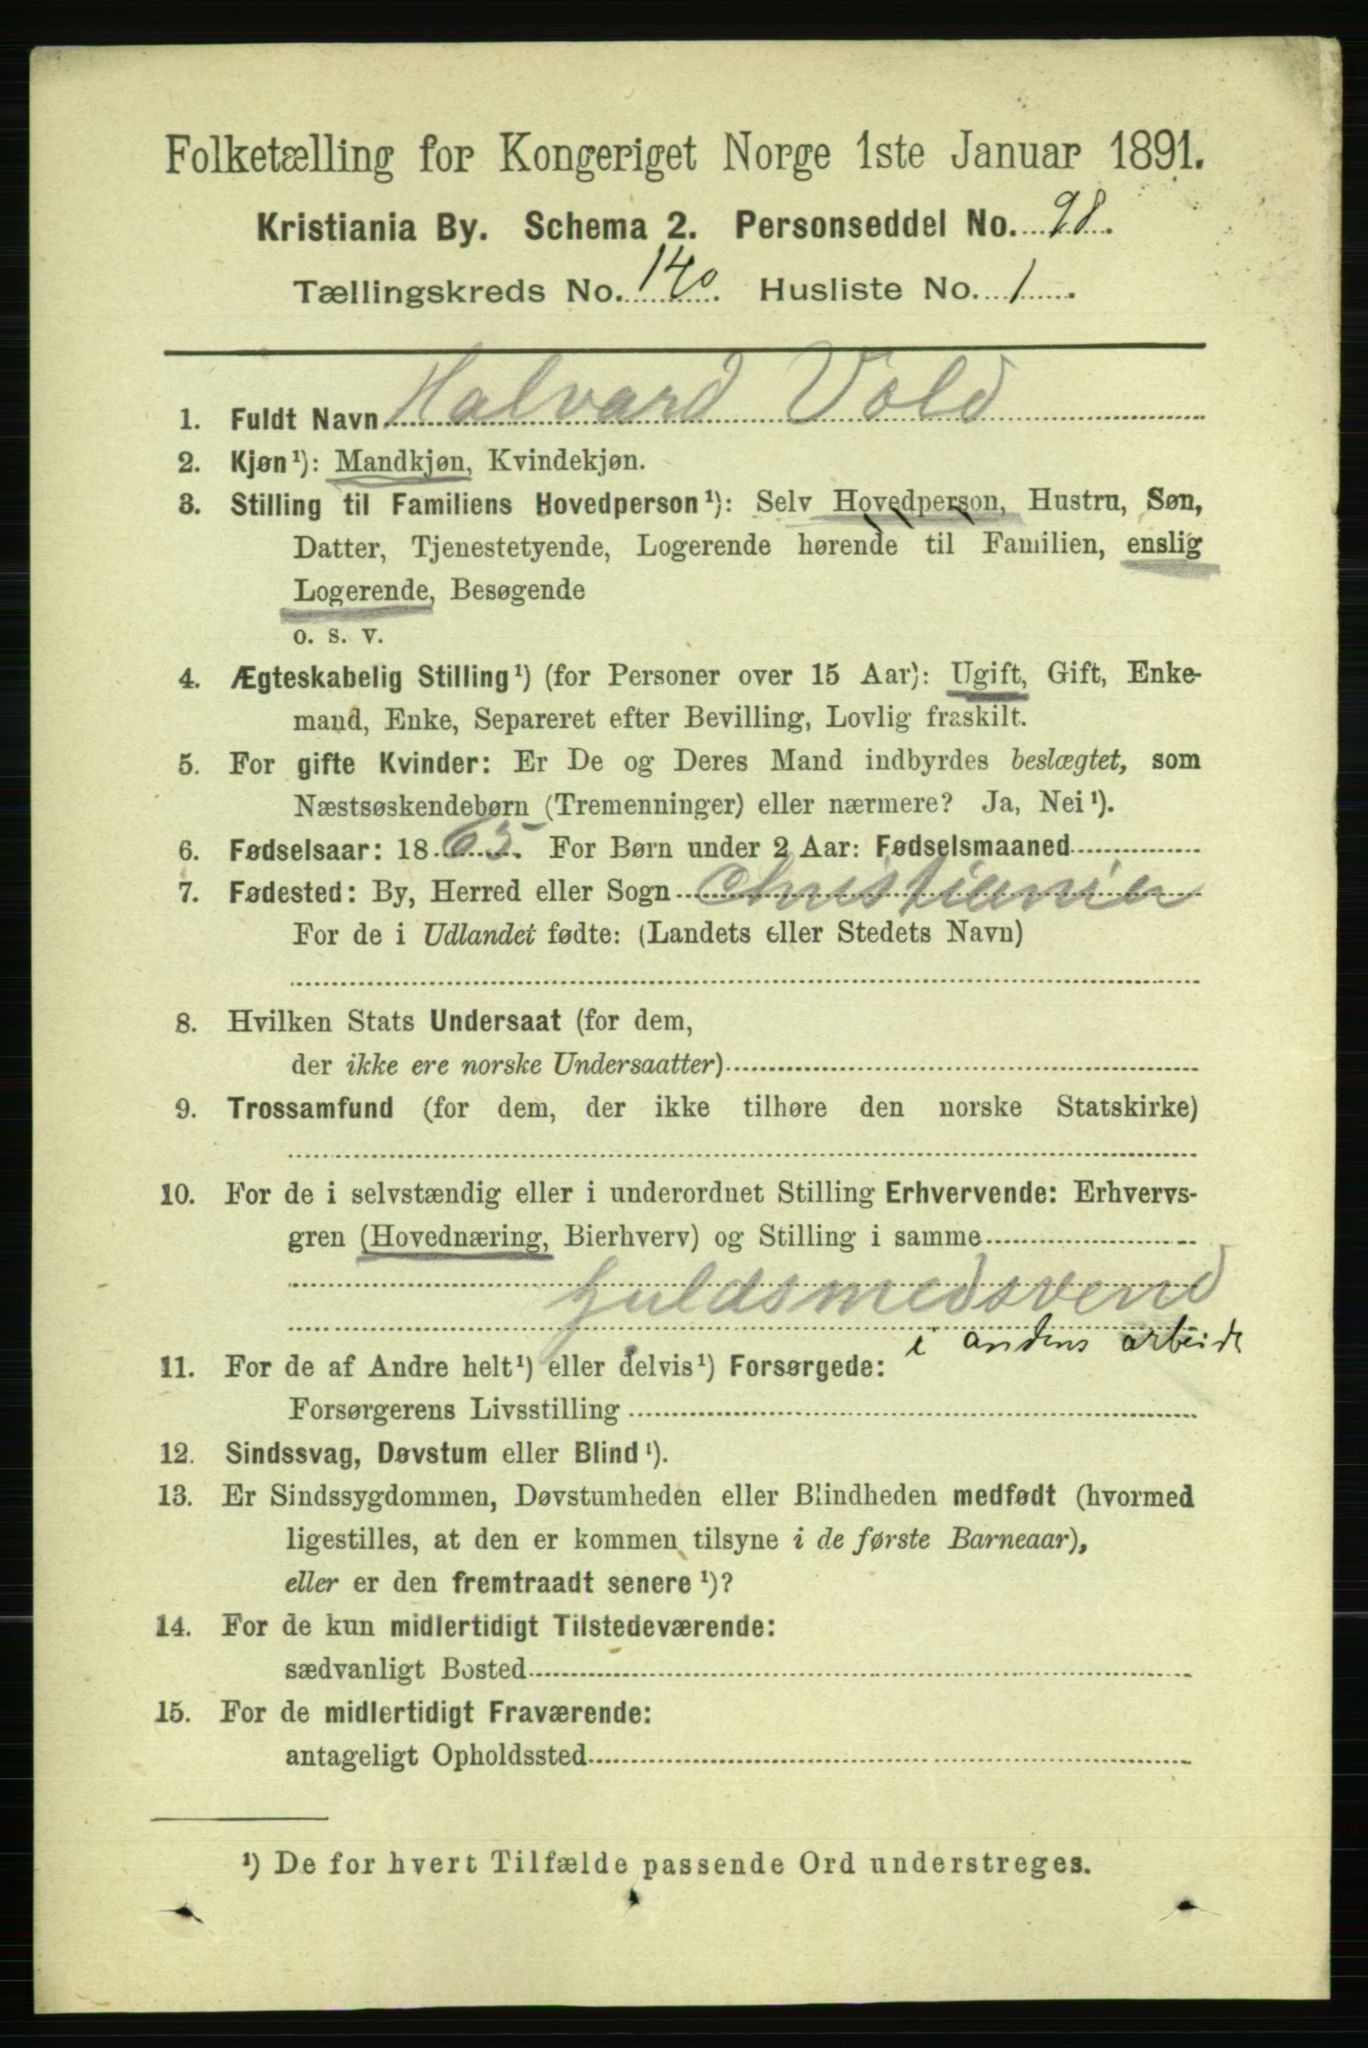 Folketælling for Kongeriget Norge 1ste Januar 1891.
Kristiania By. Schema 2. Personseddel No. 98.
Tællingskreds No. 140. Husliste No. 1.
1. Fuldt Navn Halvard Vold
2. Kjøn¹): Mandkjøn, Kvindekjøn.
3. Stilling til Familiens Hovedperson¹): Selv Hovedperson, Hustru, Søn,
Datter, Tjenestetyende, Logerende hørende til Familien, enslig
Logerende, Besøgende
o. s. v.
4. Ægteskabelig Stilling¹) (for Personer over 15 Aar): Ugift, Gift, Enke-
mand, Enke, Separeret efter Bevilling, Lovlig fraskilt.
5. For gifte Kvinder: Er De og Deres Mand indbyrdes beslægtet, som
Næstsøskendebørn (Tremenninger) eller nærmere? Ja, Nei¹).
6. Fødselsaar: 1865. For Børn under 2 Aar: Fødselsmaaned
7. Fødested: By, Herred eller Sogn Christiania
For de i Udlandet fødte: (Landets eller Stedets Navn)
8. Hvilken Stats Undersaat (for dem,
der ikke ere norske Undersaatter)
9. Trossamfund (for dem, der ikke tilhøre den norske Statskirke)
10. For de i selvstændig eller i underordnet Stilling Erhvervende: Erhvervs-
gren (Hovednæring, Bierhverv) og Stilling i samme
Guldsmedsvend
i andens arbeide
11. For de af Andre helt¹) eller delvis¹) Forsørgede:
Forsørgerens Livsstilling
12. Sindssvag, Døvstum eller Blind¹).
13. Er Sindssygdommen, Døvstumheden eller Blindheden medfødt (hvormed
ligestilles, at den er kommen tilsyne i de første Barneaar),
eller er den fremtraadt senere¹)?
14. For de kun midlertidigt Tilstedeværende:
sædvanligt Bosted
15. For de midlertidigt Fraværende:
antageligt Opholdssted
¹) De for hvert Tilfælde passende Ord understreges.